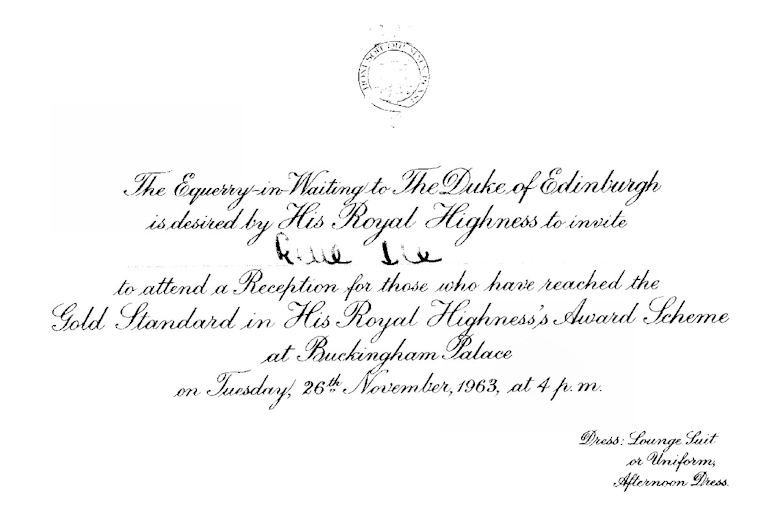 HONI SOIT QUI MAL Y PENSE
The Equerry-in-Waiting to The Duke of Edinburgh
is desired by His Royal Highness to invite
to attend a Reception for those who have reached the
Gold Standard in His Royal Highness's Award Scheme
at Buckingham Palace
on Tuesday, 26th November, 1963, at 4 p.m.
Dress: Lounge Suit
or Uniform,
Afternoon Dress.